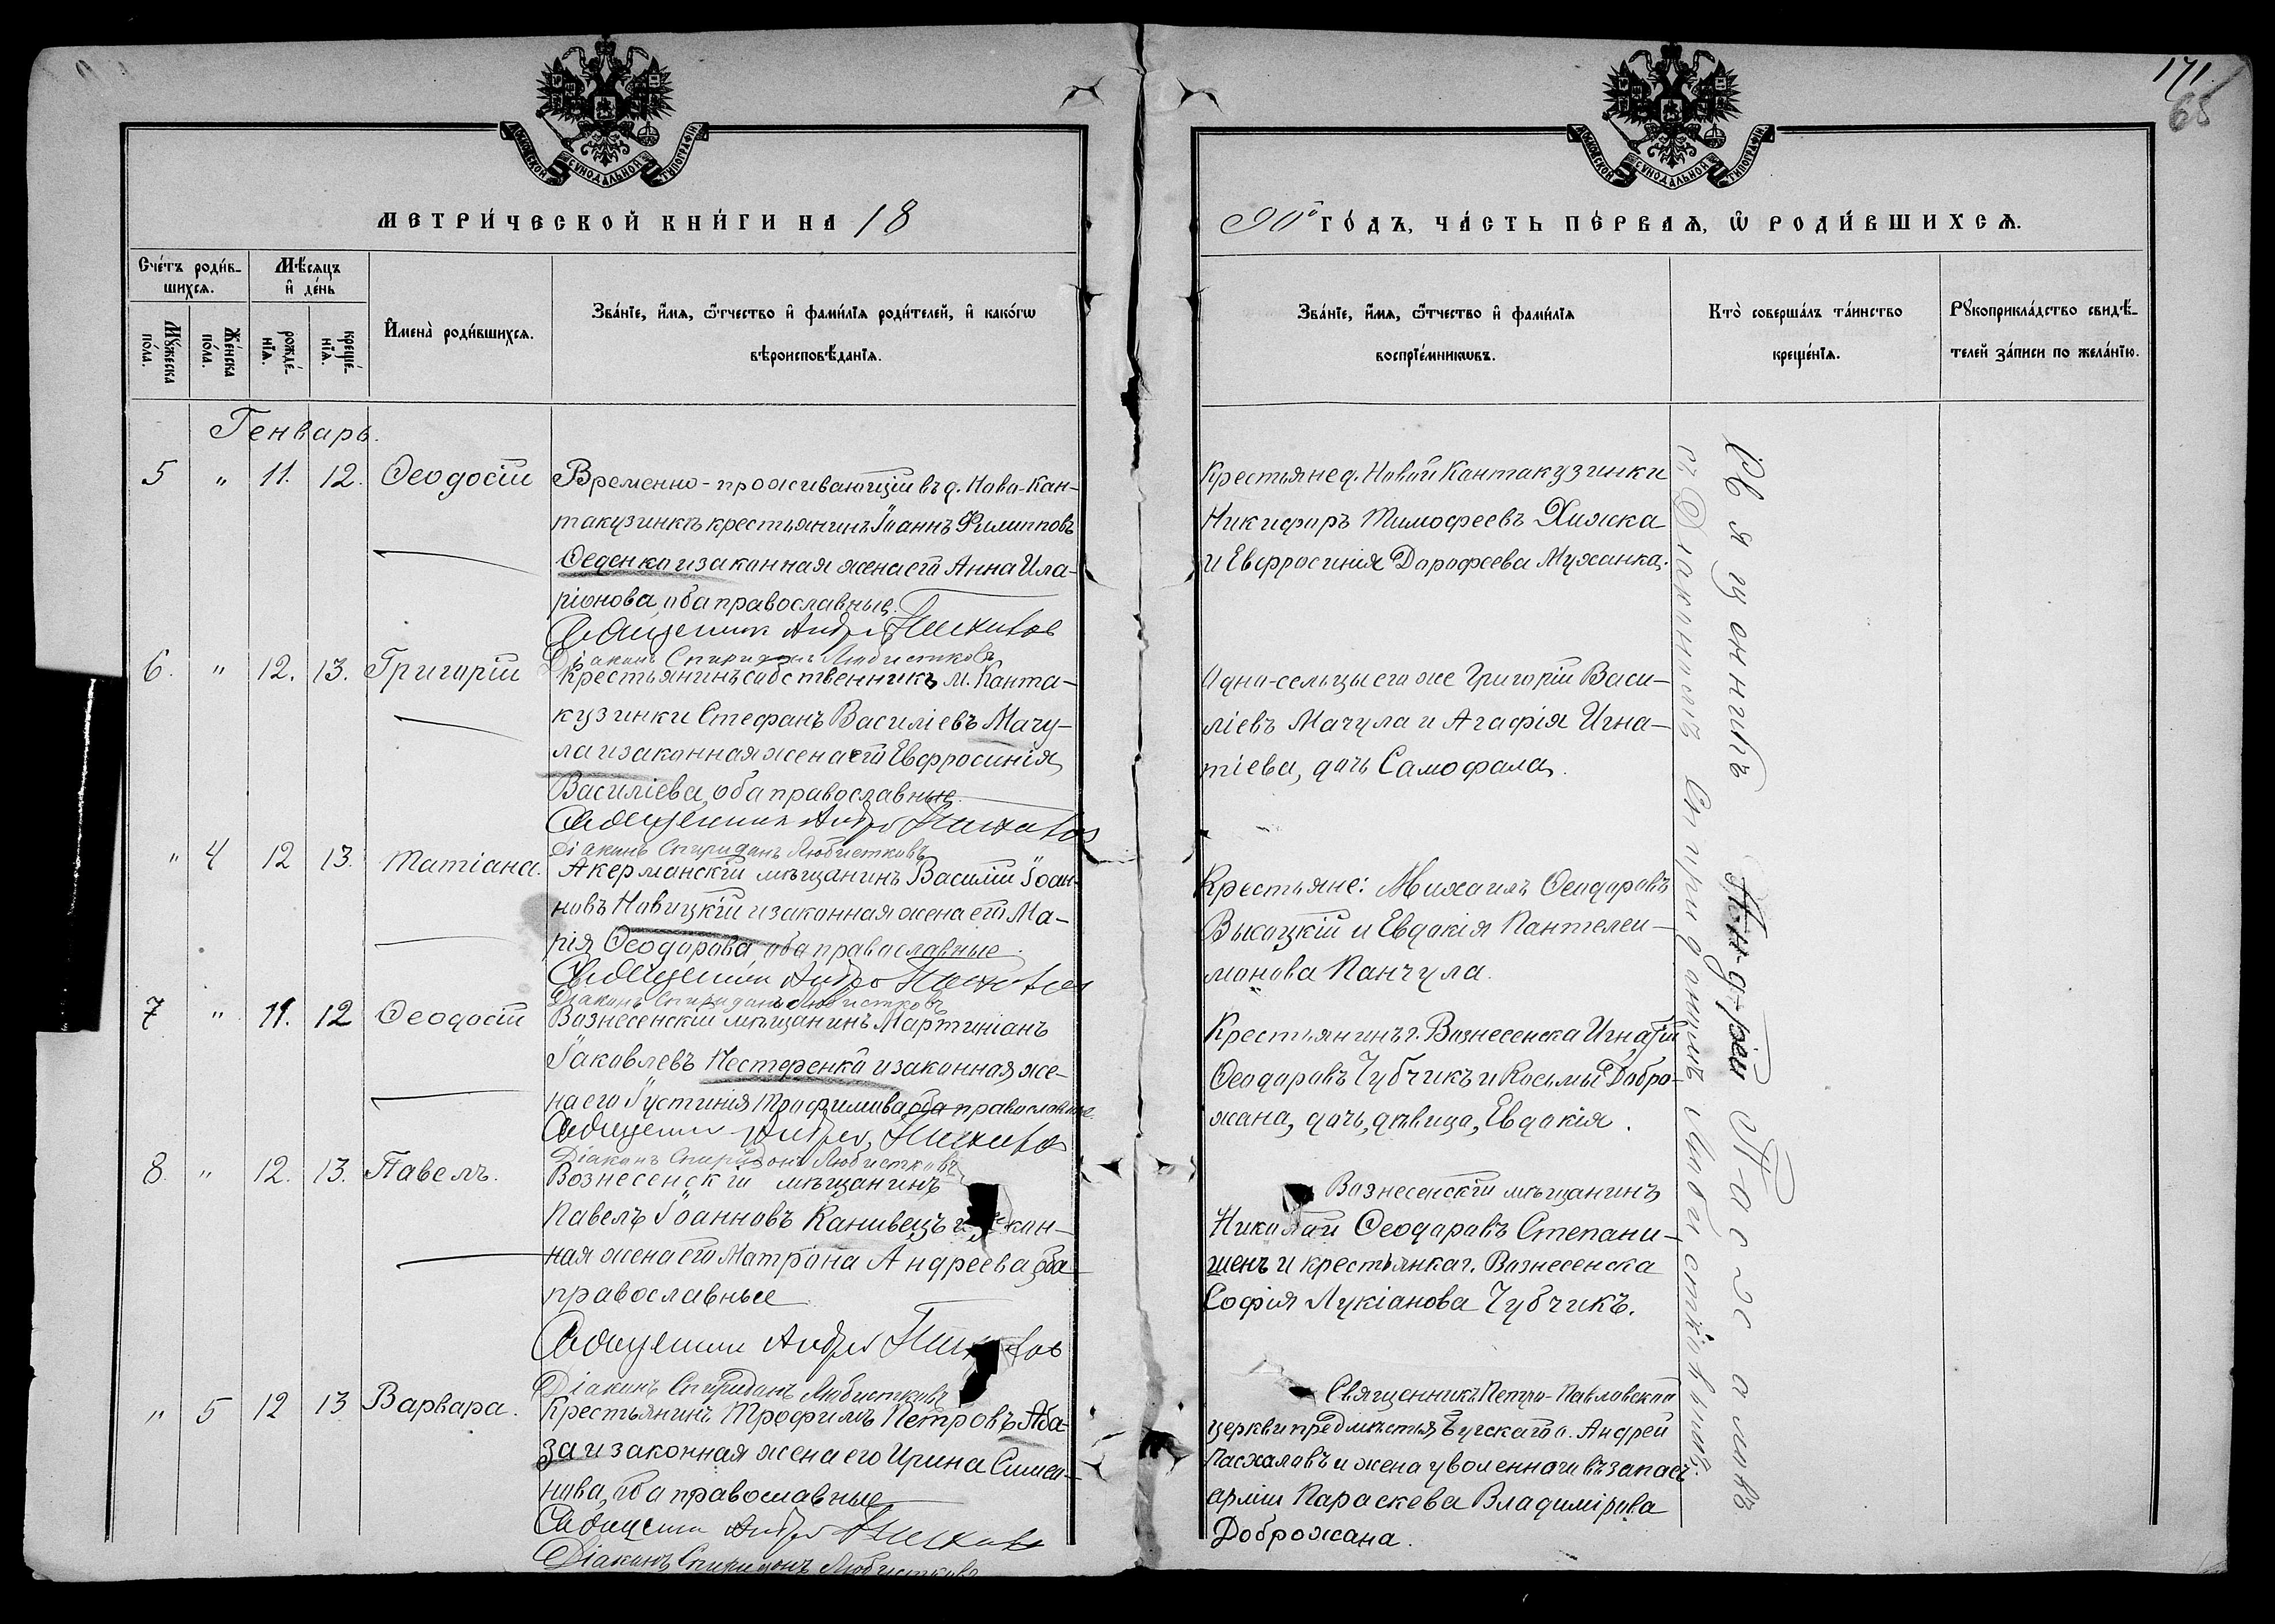 171.
65
МОСКОВСКОЙ СѴНОДАЛЬНОЙ ТИПОГРАФІИ
МОСКОВСКОЙ СѴНОДАЛЬНОЙ ТИПОГРАФІИ
МЕТРИ́ЧЕСКОЙ КНИ́ГИ НА 18
90й ГО́ДЪ, ЧА́СТЬ ПЕ́РВАѦ, Ѡ҆ РОДИ́ВШИХСѦ.
Сче́тъ роди́в-
шихсѧ.
Мѣ́сяцъ
и҆ де́нь
Мꙋ́жеска
по́ла.
Же́нска
по́ла.
рожде́-
нїѧ.
креще́-
нїѧ.
И҆мена̀ роди́вшихсѧ.
Зва́нїе, и҆́мѧ, ѻ҆́тчество и҆ фами́лїѧ роди́телей, и҆ како́гѡ
вѣроисповѣ́данїѧ.
Зва́нїе, и҆́мѧ, ѻ҆́тчество и҆ фами́лїѧ
воспрїе́мникѡвъ.
Кто̀ соверша́лъ та́инство
креще́нїѧ.
Рꙋкоприкла́дство свидѣ́-
телей за́писи по жела́нїю.
Генварь.
5 " 11. 12. Ѳеодосій
Временно-проживающій въ д. Ново-Кан-
такузинкѣ крестьянинъ Іоаннъ Филипповъ
Феденко и законная жена его Анна Ила-
ріонова, оба православные.
Священник Андрей
Діаконъ Спиридонъ Любистковъ
Крестьяне д. Новой Кантакузинки
Никифоръ Тимофеевъ Хижка
и Евфросинія Дорофеева Мужанка.
6. " 12. 13. Григорій
Крестьянинъ собственникъ м. Канта-
кузинки Стефанъ Василіевъ Мачу-
ла и законная жена его Евфросинія
Василіева, оба православные.
Священник Андрей
Діаконъ Спиридонъ Любистковъ
Одно-сельцы его же Григорій Васи-
ліевъ Мачула и Агафія Игна-
тіева, дочь Самофала.
" 4 12 13. Татіана.
Акерманскій мѣщанинъ Василій Іоан-
новъ Новицкій и законная жена его Ма-
рія Ѳеодорова, оба православные.
Священник Андрей
Діаконъ Спиридонъ Любистковъ
Крестьяне: Михаилъ Ѳеодоровъ
Высоцкій и Евдокія Пантелеи-
монова Панчула.
7 " 11. 12 Ѳеодосій
Вознесенскій мѣщанинъ Мартиніанъ
Іаковлевъ Нестеренко и законная же-
на его Іустинія Трофимова, оба православные.
Священник Андрей
Діаконъ Спиридонъ Любистковъ
Крестьянинъ г. Вознесенска Игнатій
Ѳеодоровъ Чубчикъ и Косьмы Добро-
жана, дочь, дѣвица, Евдокія.
8. " 12. 13. Павелъ.
Вознесенскій мѣщанинъ
Павелъ Іоанновъ Канивецъ и закон-
ная жена его Матрона Андреева, оба
православные
Священник Андрей
Діаконъ Спиридонъ Любистковъ
Вознесенскій мѣщанинъ
Николай Ѳеодоровъ Степани-
шенъ и крестьянка г. Вознесенска
Софія Лукіанова Чубчикъ.
" 5 12 13 Варвара.
Крестьянинъ Трофимъ Петровъ Аба-
за и законная жена его Ирина Симео-
нова, оба православные
Священник Андрей
Діаконъ Спиридонъ Любистковъ
Священникъ Петро-Павловской
церкви предмѣстья Бугскаго о. Андрей
Пасхаловъ и жена уволеннаго въ запасъ
арміи Параскева Владимірова
Доброжана.
Священникъ Андрей Пасхаловъ
съ Діакономъ Спиридономъ Любистковымъ.